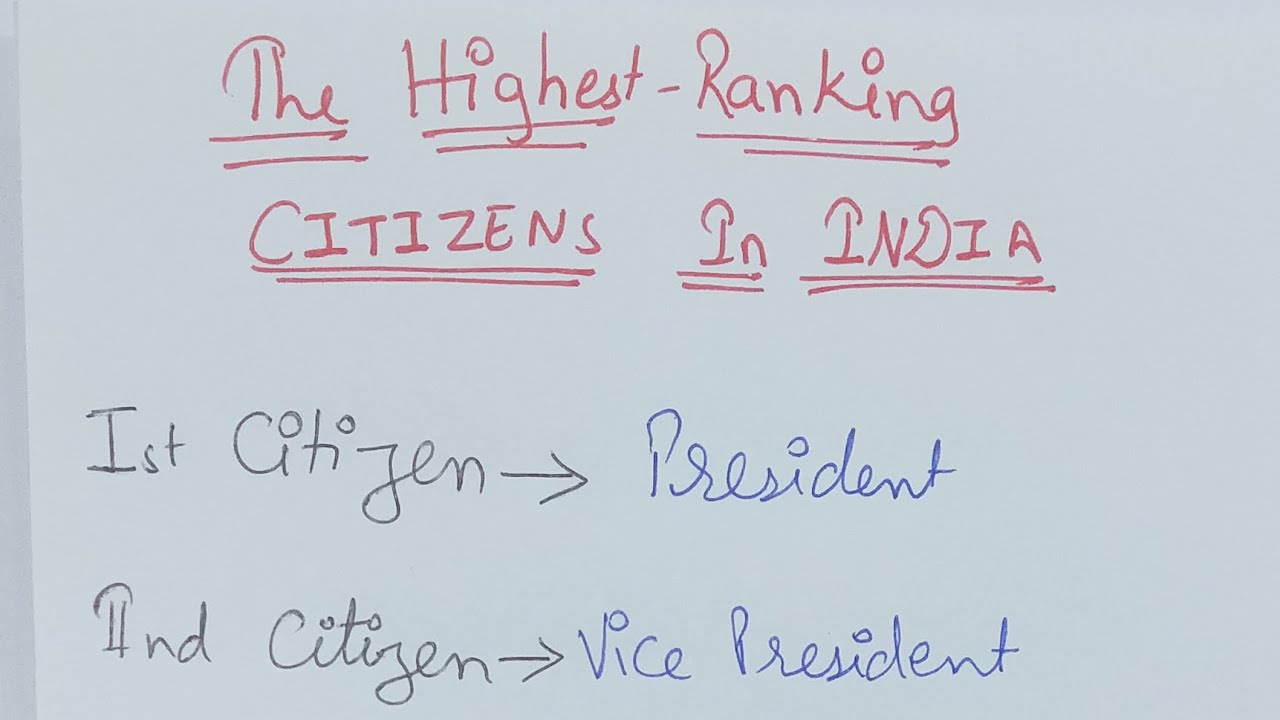 The Highest-Ranking
CITIZENS In INDIA
Ist Citizen → President
IInd Citizen → Vice President